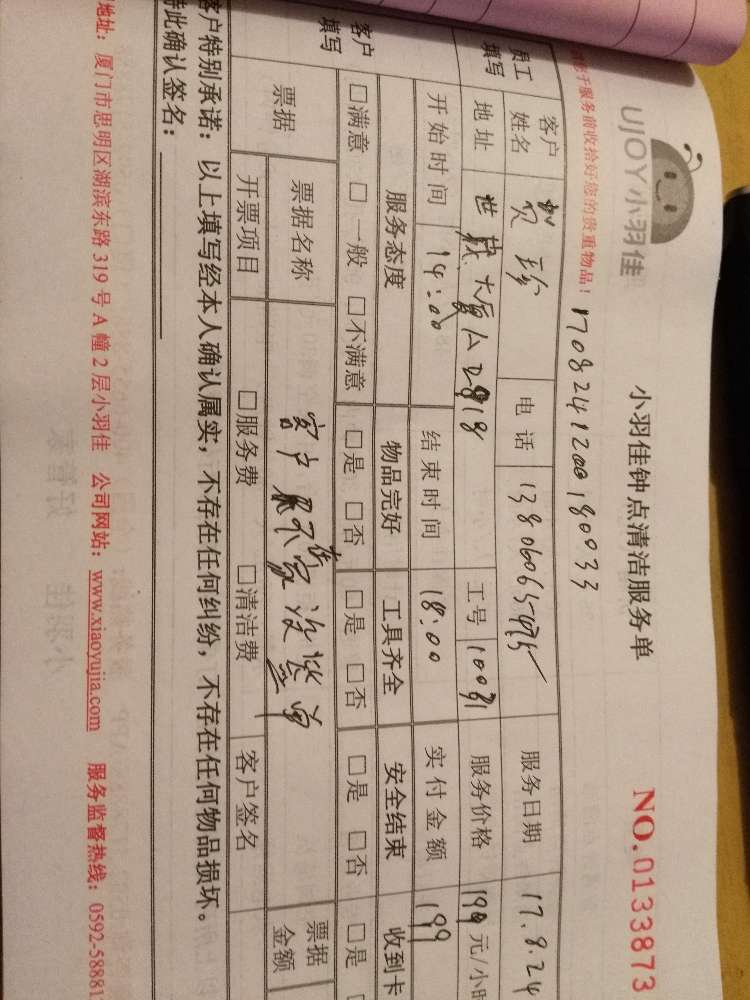 UJOY小羽佳
小羽佳钟点清洁服务单
NO.0133873
于服务前收拾好您的贵重物品！
1708241200180033
员工填写
客户姓名 珍 电话 服务日期 17.8.24
地址 世 大厦A2818 工号 服务价格 199 元/小时
开始时间 14:00 结束时间 18:00 实付金额 199
客户填写
服务态度 物品完好 工具齐全 安全结束 收到卡
□满意 □一般 □不满意 □是 □否 □是 □否 □是 □否 □是
票据 票据名称 客户 不在家没签单 票据金额
开票项目 □服务费 □清洁费 客户签名
客户特别承诺：以上填写经本人确认属实，不存在任何纠纷，不存在任何物品损坏。
特此确认签名：
地址：厦门市思明区湖滨东路 319 号 A 幢 2 层小羽佳 公司网站：www.xiaoyujia.com 服务监督热线：0592-58881